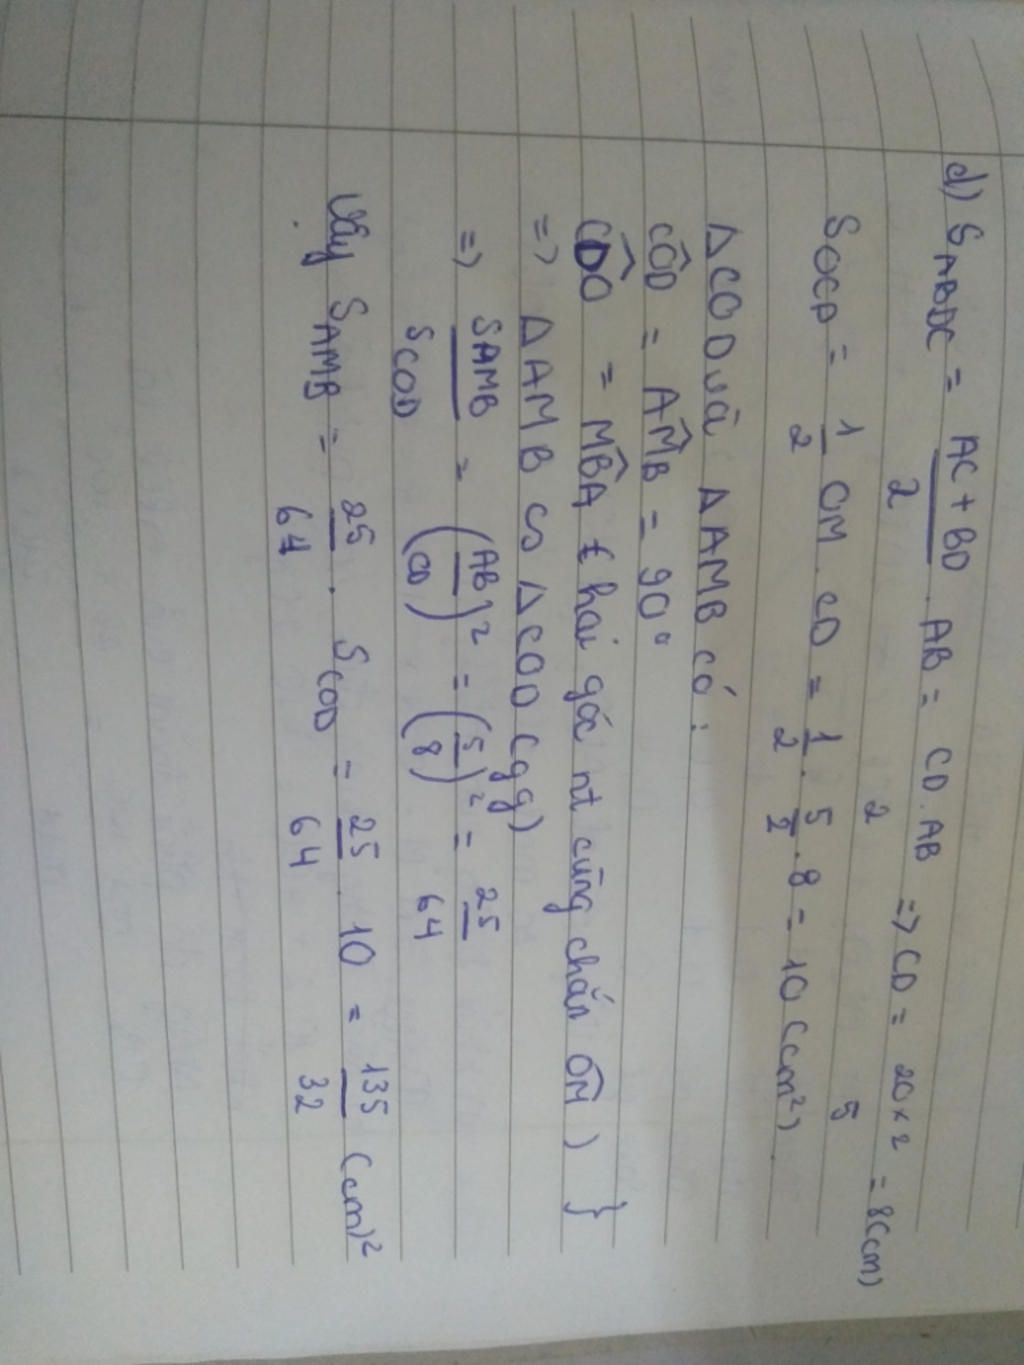 d) S_ABDC = (AC + BD)/2 . AB = CD . AB/2 => CD = 20 x 2/5 = 8 (cm)
S_OCD = 1/2 OM . CD = 1/2 . 5/2 . 8 = 10 (cm²)
ΔCOD và ΔAMB có:
CÔD = AM̂B = 90°
CD̂O = MB̂A ( hai góc nt cùng chắn OM )}
=> ΔAMB ∽ ΔCOD (gg)
=> S_AMB/S_COD = (AB/CD)² = (5/8)² = 25/64
Vậy S_AMB = 25/64 . S_COD = 25/64 . 10 = 135/32 (cm)²